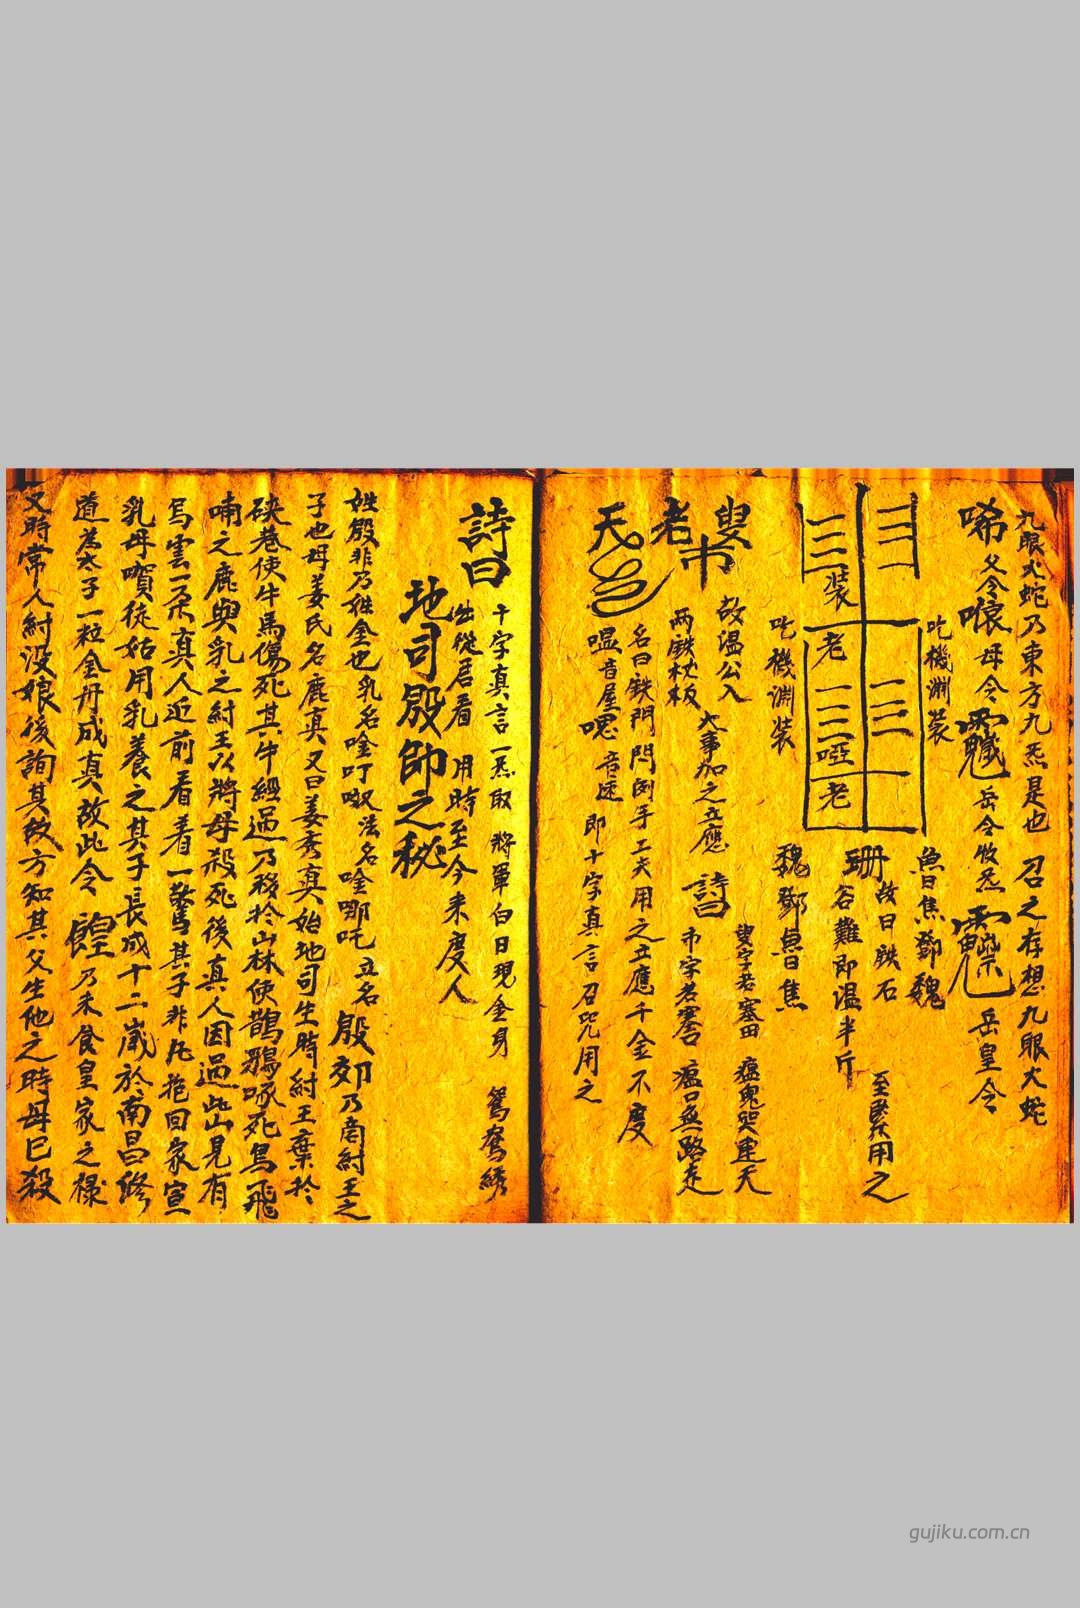 九眼火蛇乃東方九炁是也 召之存想九眼大蛇
唏父令 母令 岳令牧炁 岳皇令
吃機淵裝
魯焦鄧魏
三三一
裝
老
一三三啞
一三三
老
吃機淵裝
魏鄧魯焦
珊故曰跌石
谷難即温半斤
至緊用之
叟市老天
故温公入
两鉄枕板
大事加之立應
詩曰
叟字若塞田 瘟鬼哭連天
市字若塞 瘟 無路走
名曰鉄門閂 手工夫用之立應千金不度
嗢音屋 音速 即十字真言召咒用之
詩曰
十字真言一炁取 將軍白日現金身 鴛鴦綉
出從居看 用時至今未度人
地司殷帥之秘
姓殷非乃姓金也乳名唫叮呶法名唫哪吒立名殷郊乃商紂王之
子也母姜氏名鹿真又曰姜秀真始地司生時紂王棄於
硤巷使牛馬傷死其牛經過乃移於山林使鵲鴉啄死鳥飛
喃之鹿與乳之紂王以將母殺死後真人因過此山見有
烏雲一朵真人近前看着一驚其子非凡抱回家宣
乳母嘪徒姑用乳養之其子長成十二歲於南昌修
道為太子一粒金丹成真故此令餭乃未食皇家之祿
又時常人紂没娘後詢其故方知其父生他之時母已殺
gujiku.com.cn